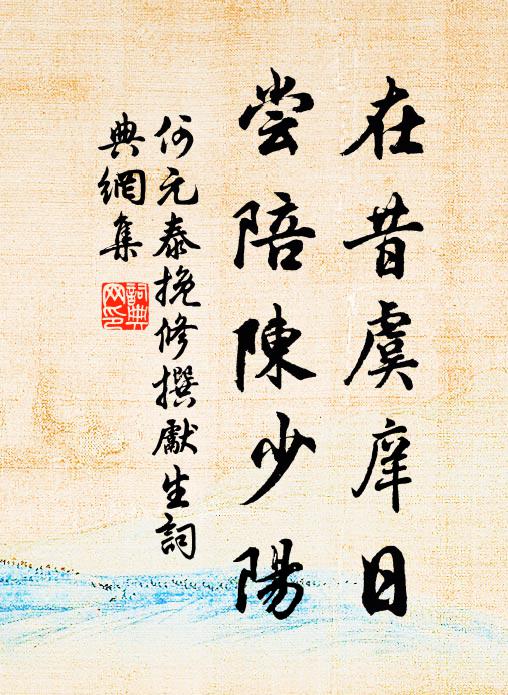 在昔虞庠日
尝陪陳少陽
何元泰挽修撰獻生詞
典網集
詞典网印